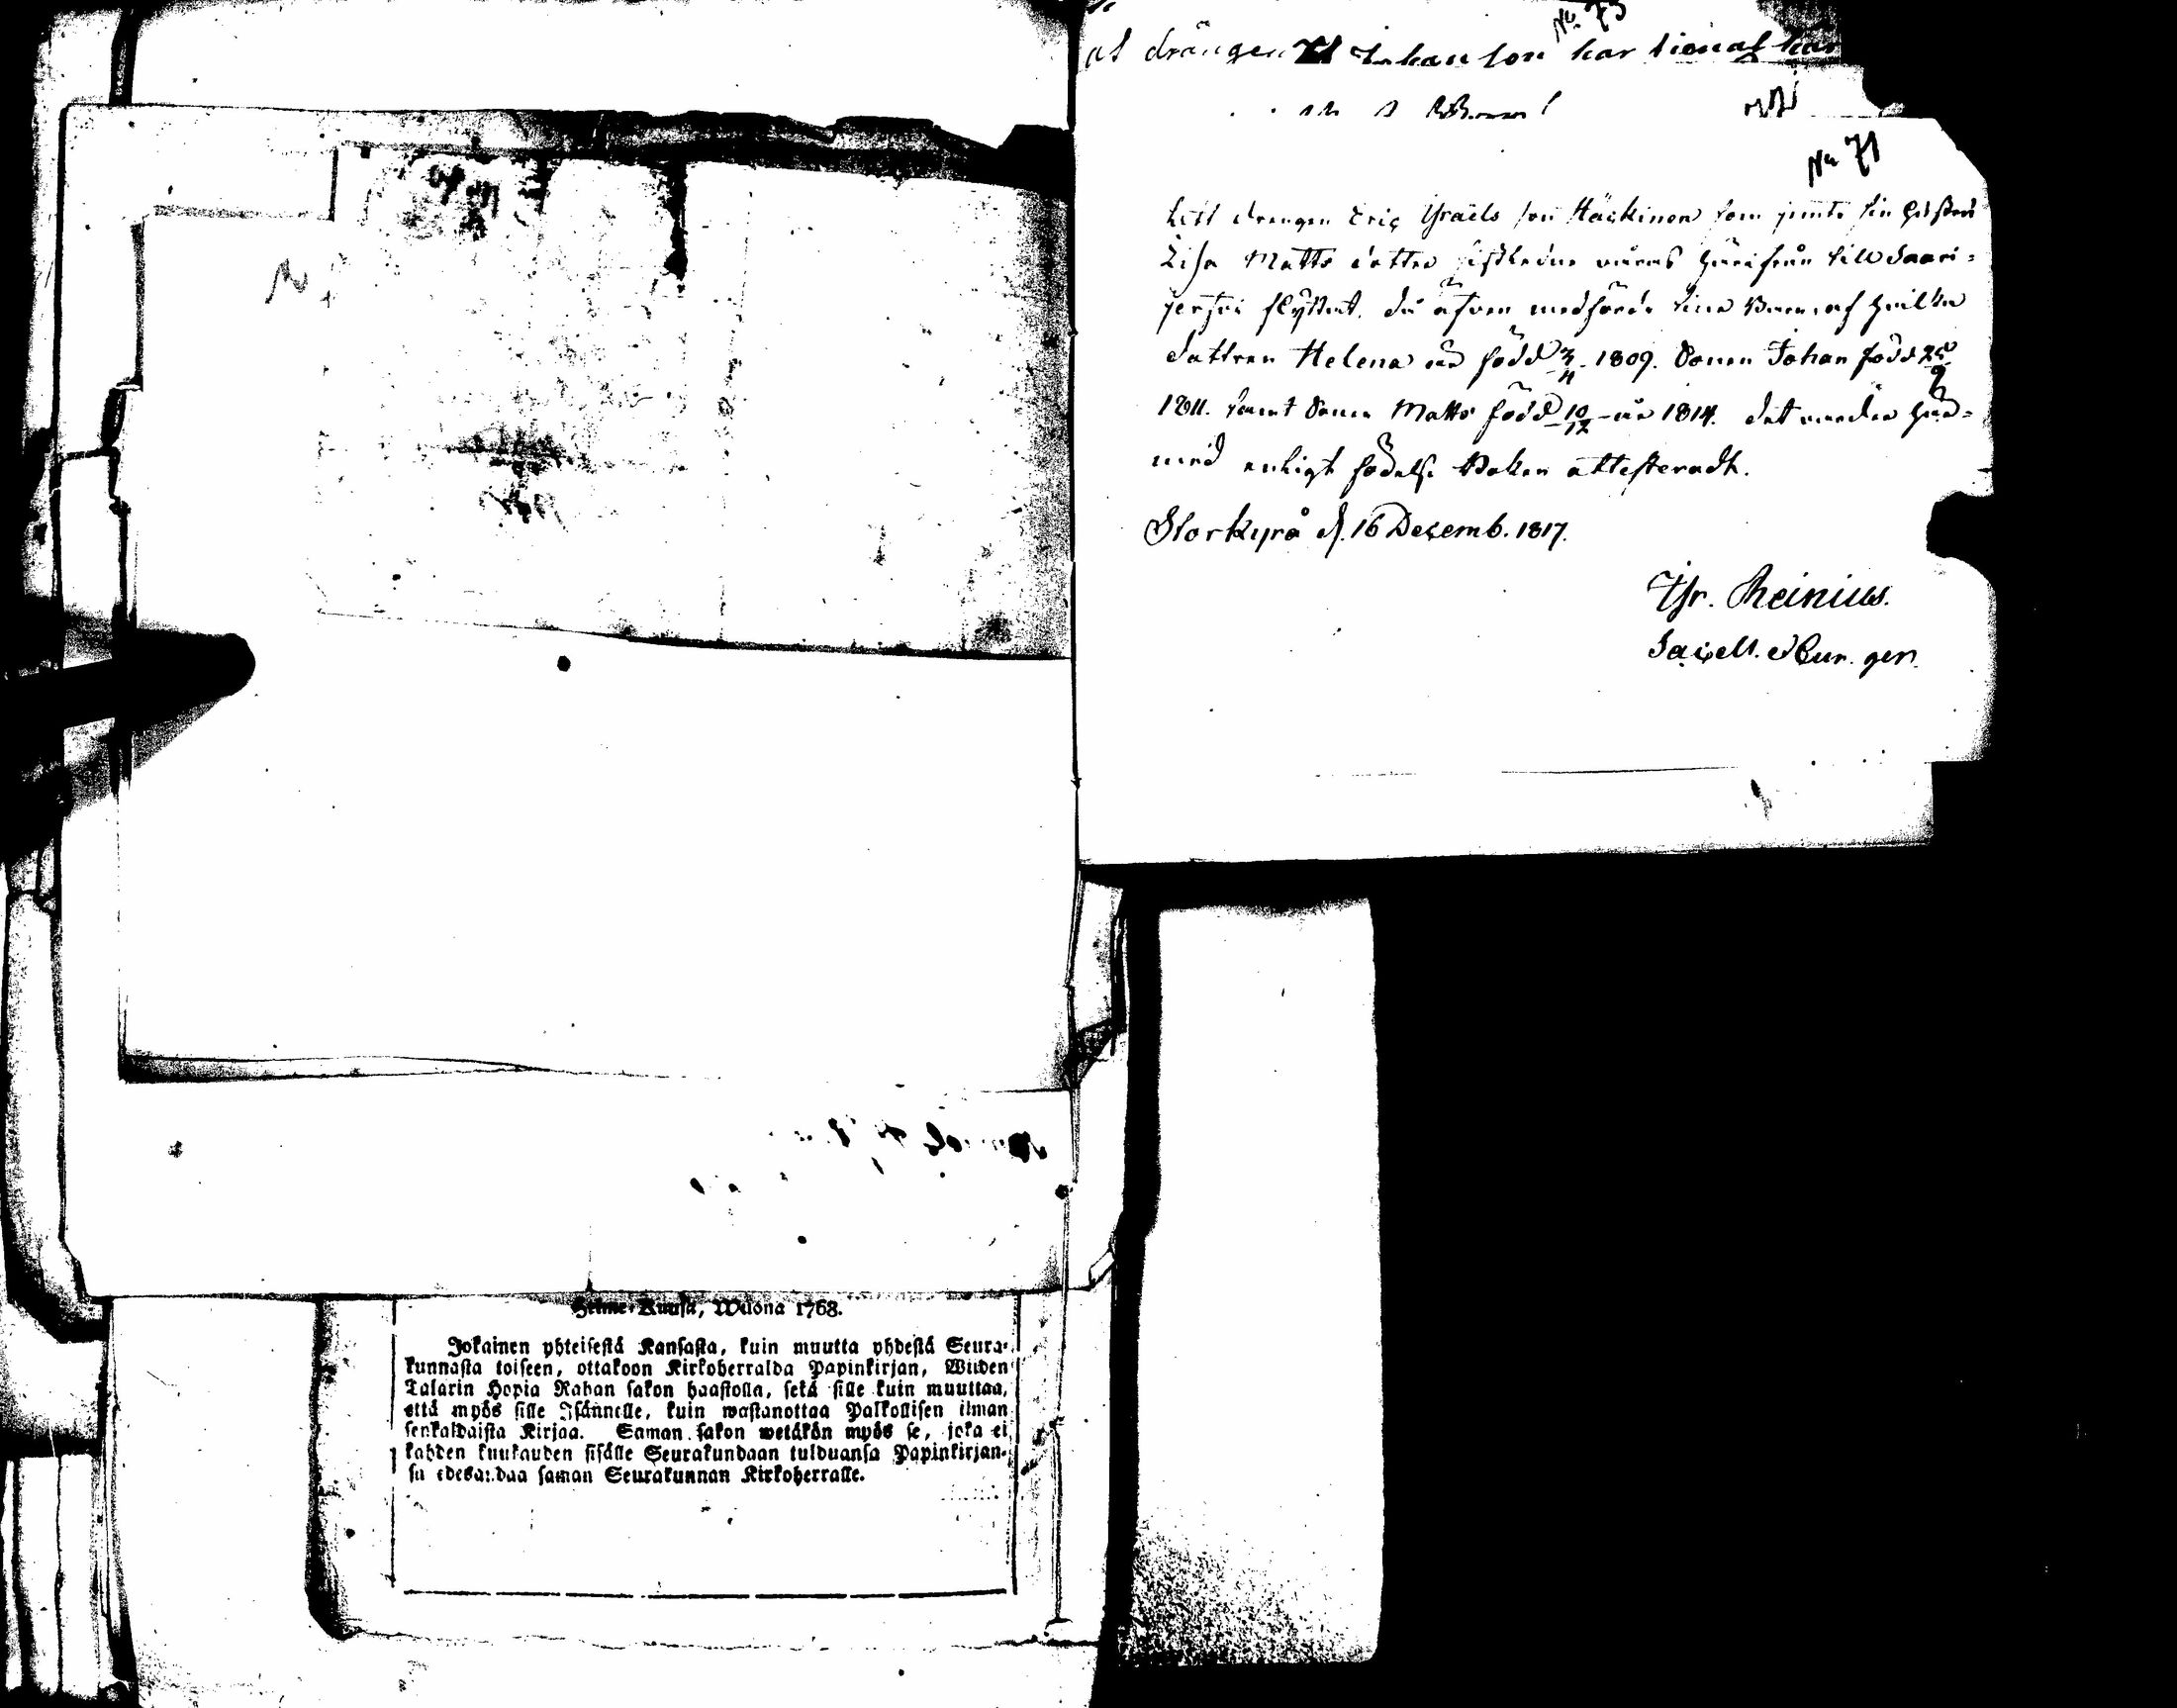 No. 73
at drängen Johansson har tienat har
No 71
Att drengen Eric Israels son Häckinen som jemte sin Hustru
Lisa Matts dotter sistledne våras härifrån till Saari-
jervi flyttat, då äfven medförde sina Barn, af hvilka
dottren Helena är född 3/4 1809. Sonen Johan född 25/9
1811. samt Sonen Matts född 10/12 år 1814. det varder här-
med enligt födelse Boken attesteradt.
Storkyro d. 16 Decemb. 1817.
Isr. Reinius.
Sacell. & Cur. ger.
Helme-Kuusa, Wuona 1768.
Jokainen yhteisestä Kansasta, kuin muutta yhdestä Seura-
kunnasta toiseen, ottakoon Kirkoherralda Papinkirjan, Wiiden
Talarin Hopia Rahan sakon haastolla, sekä sille kuin muuttaa,
että myös sille Isännelle, kuin wastanottaa Palkollisen ilman
senkaldaista Kirjaa. Saman sakon wetäkön myös se, joka ei
kahden kuukauden sisälle Seurakundaan tulduansa Papinkirjan-
sa edesandaa saman Seurakunnan Kirkoherralle.